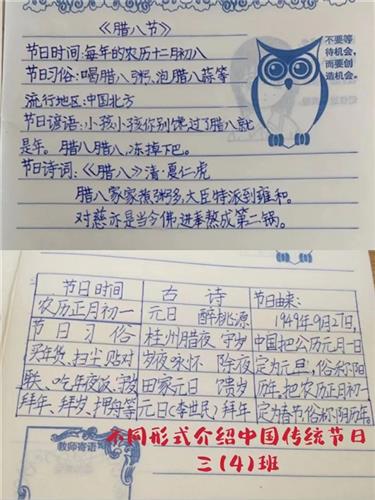 《腊八节》
节日时间:每年的农历十二月初八
节日习俗:喝腊八粥,泡腊八蒜等
流行地区:中国北方
节日谚语:小孩小孩你别馋过了腊八就
是年。腊八腊八,冻掉下巴。
节日诗词:《腊八》清·夏仁虎
腊八家家煮粥多,大臣特派到雍和。
对慈亦是当今佛,进奉熬成第二锅。
不要等
待机会,
而要创
造机会。
节日时间
农历正月初一
节日习俗
买年货、扫尘、贴对
联、吃年夜饭、守岁
拜年、拜岁、押舟等
古诗
元日 醉桃源
桂州腊夜 守岁
岁夜咏怀 除夜
田家元日 馈岁
元日(李世民) 拜年
节日由来:
1949年9月27日,
中国把公历元月一日
定为元旦,俗称阳
历年,把农历正月初一
定为春节,俗称阴历年。
教师寄语
不同形式介绍中国传统节日
三(4)班